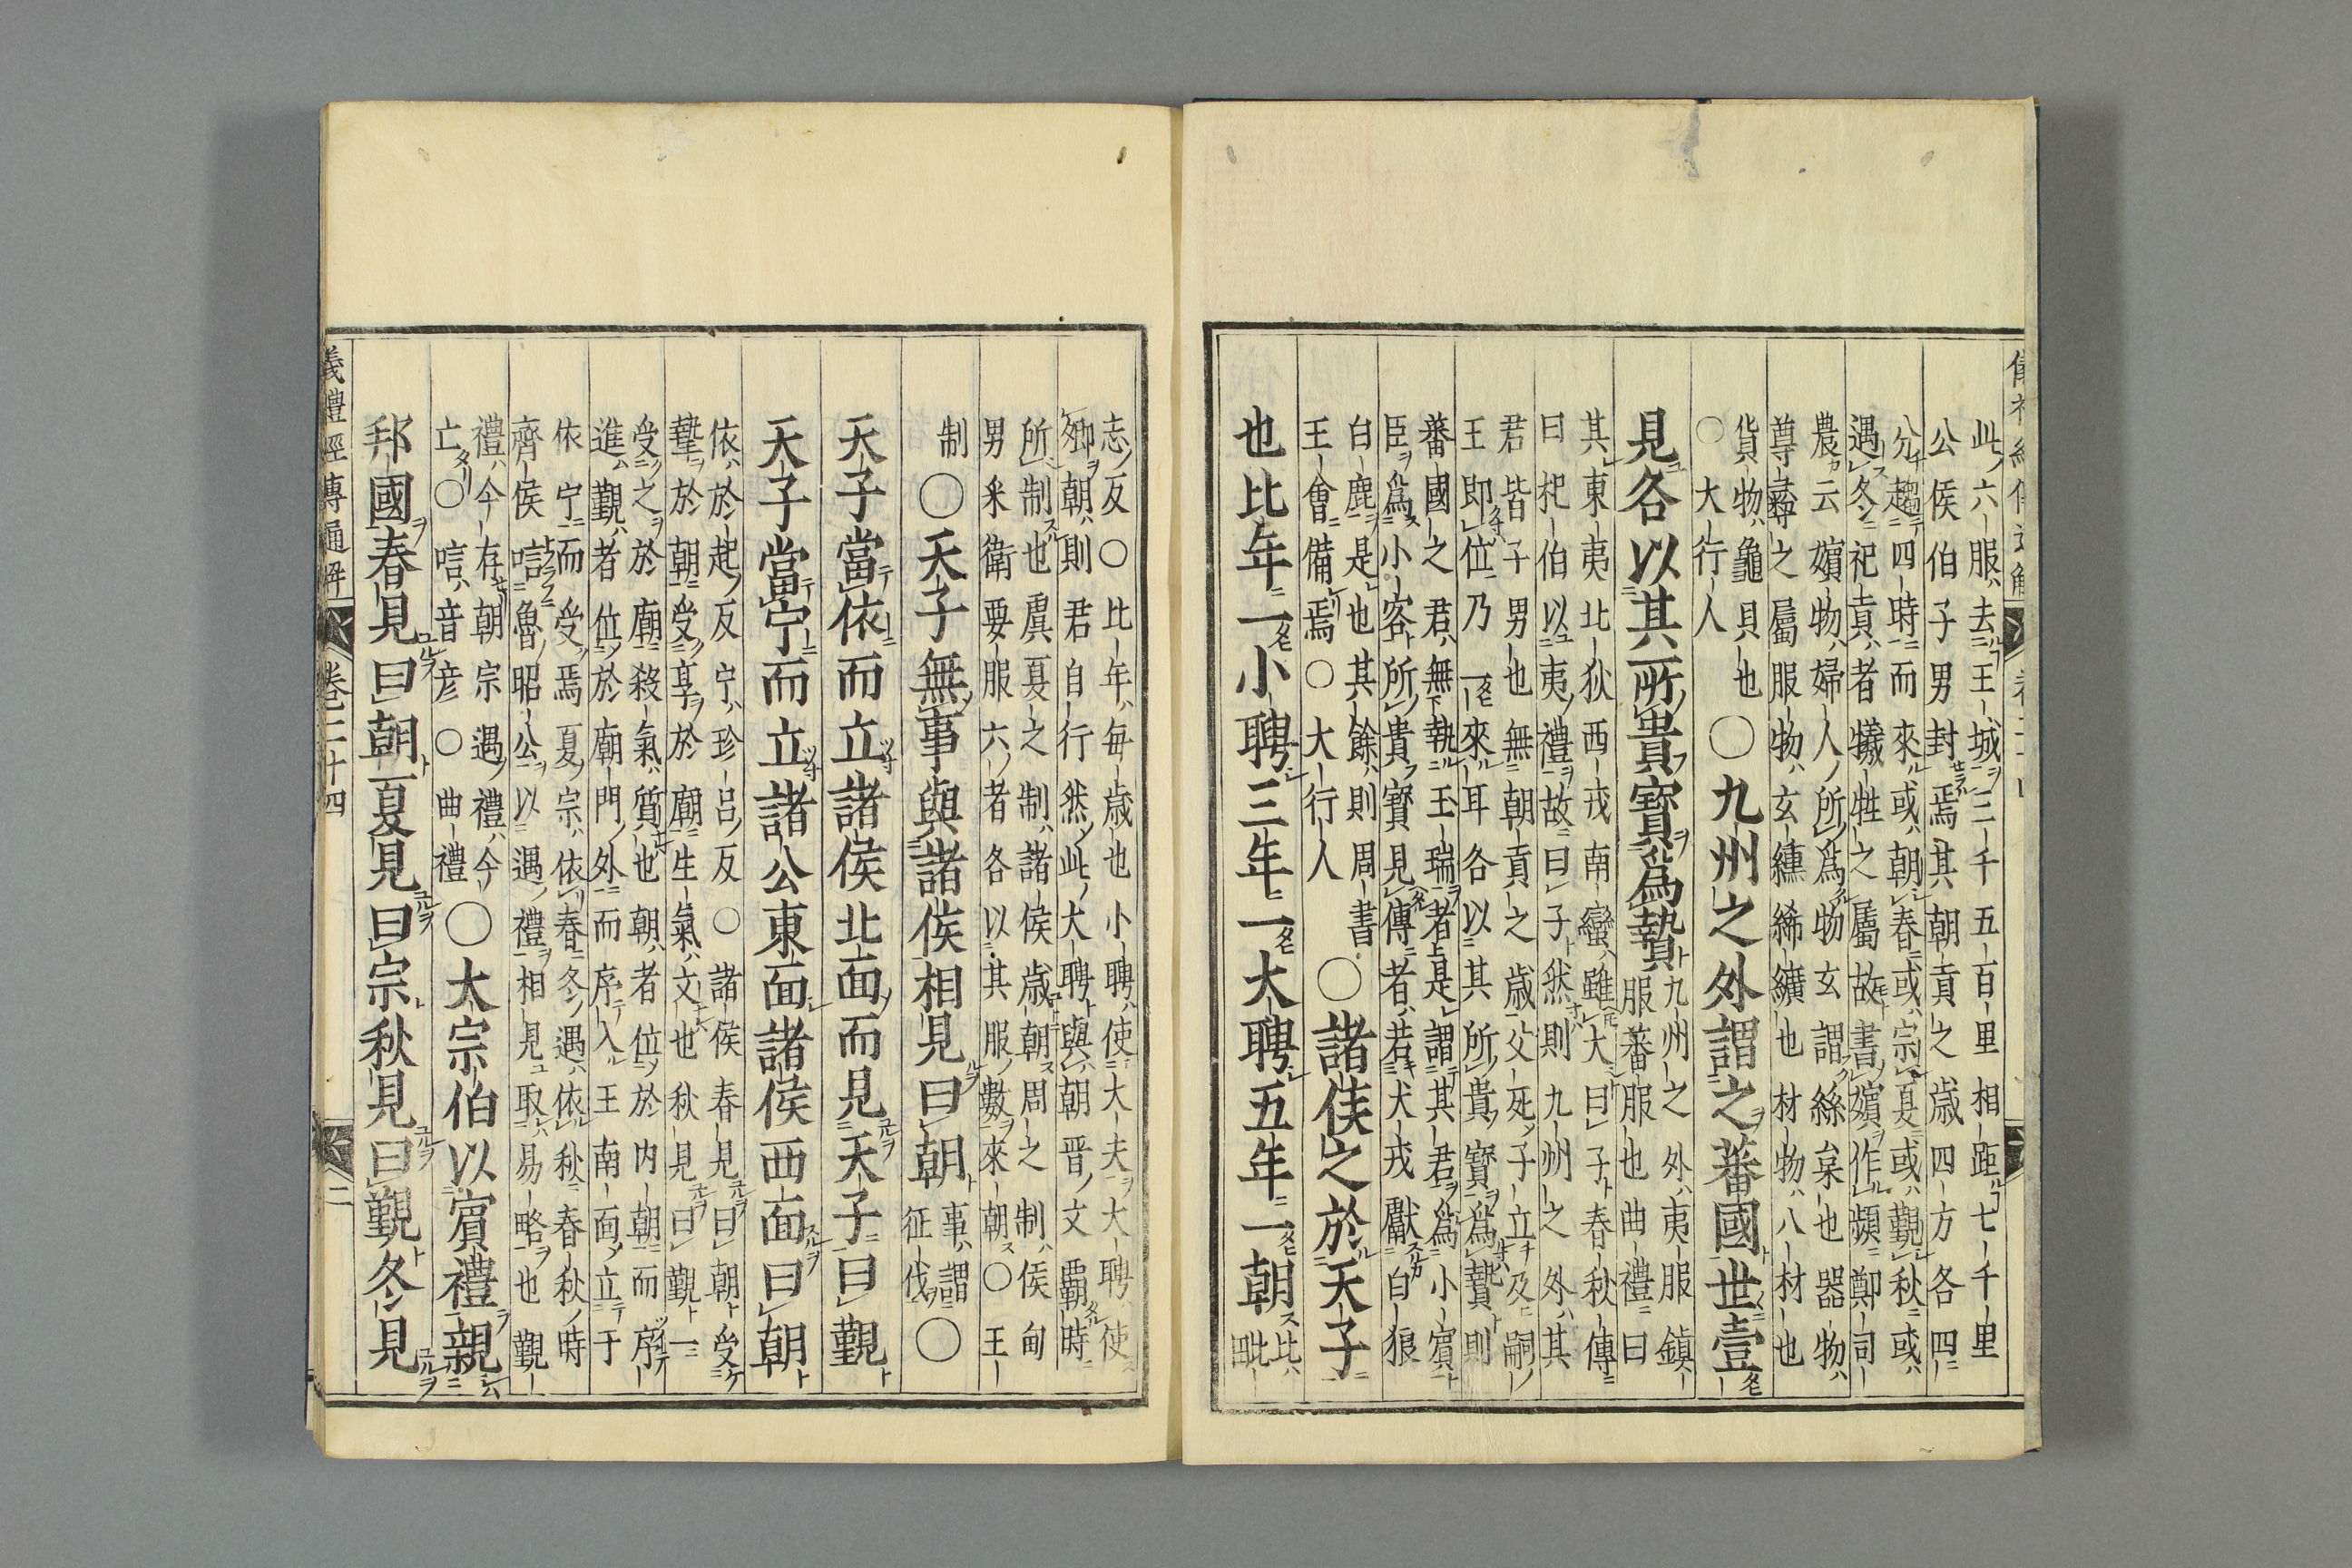 此六服去王城三千五百里相距七千里
公侯伯子男封焉其朝貢之歲四方各四
分趨四時而來或朝春或宗夏或覲秋或
遇冬祀貢者犧牲之屬故書嬪作頻鄭司
農云嬪物婦人所爲物玄謂絲枲也器物
尊彝之屬服物玄纁絺纊也材物八材也
貨物龜貝也
○大行人
○九州之外謂之蕃國世壹
見各以其所貴寶爲贄
九州之外夷服鎮
服蕃服也曲禮曰
其東夷北狄西戎南蠻雖大曰子春秋傳
曰杞伯以夷禮故曰子然則九州之外其
君皆子男也無朝貢之歲父死子立及嗣
王即位乃一來耳各以其所貴寶爲贄則
蕃國之君無執玉瑞者是謂其君爲小賓
臣爲小客所貴寶見傳者若犬戎獻白狼
白鹿是也其餘則周書
王會備焉○大行人
○諸侯之於天子
也比年一小聘三年一大聘五年一朝
比毗
志反○比年毎歲也小聘使大夫大聘使
卿朝則君自行然此大聘與朝晋文覇時
所制也虞夏之制諸侯歲朝周之制侯甸
男采衛要服六者各以其服數來朝○王
制
○天子無事與諸侯相見曰朝
事謂
征伐
○
天子當依而立諸侯北面而見天子曰覲
天子當宁而立諸公東面諸侯西面曰朝
依於起反宁珍呂反○諸侯春見曰朝受
摯於朝受享於廟生氣文也秋見曰覲一
受之於廟殺氣質也朝者位於内朝而序
進覲者位於廟門外而序入王南面立于
依宁而受焉夏宗依春冬遇依秋春秋時
齊侯唁魯昭公以遇禮相見取易略也覲
禮今存朝宗遇禮今
亡○唁音彦○曲禮
○大宗伯以賓禮親
邦國春見曰朝夏見曰宗秋見曰覲冬見
義禮經傳通解
卷二十四
二